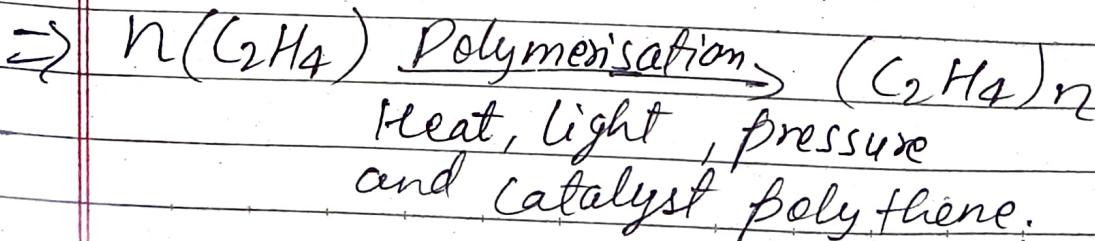 ⇒ n(C₂H₄) Polymerisation → (C₂H₄)n
Heat, light, pressure
and catalyst polythene.